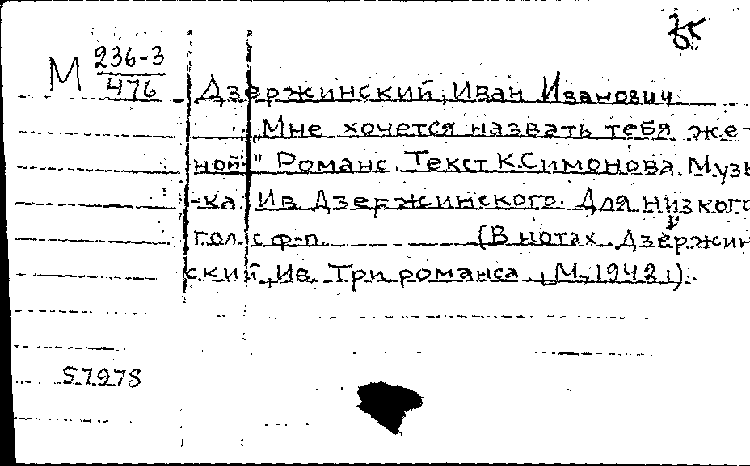 М 236-3
476
Дзержинский, Иван Иванович
„Мне хочется назвать тебя же-
ной." Романс. Текст К. Симонова. Музы
-ка Ив. Дзержинского. Для низкого
гол. с ф-п. (В нотах: Дзержин
ский, Ив. Три романса, М, 1942г).
57978